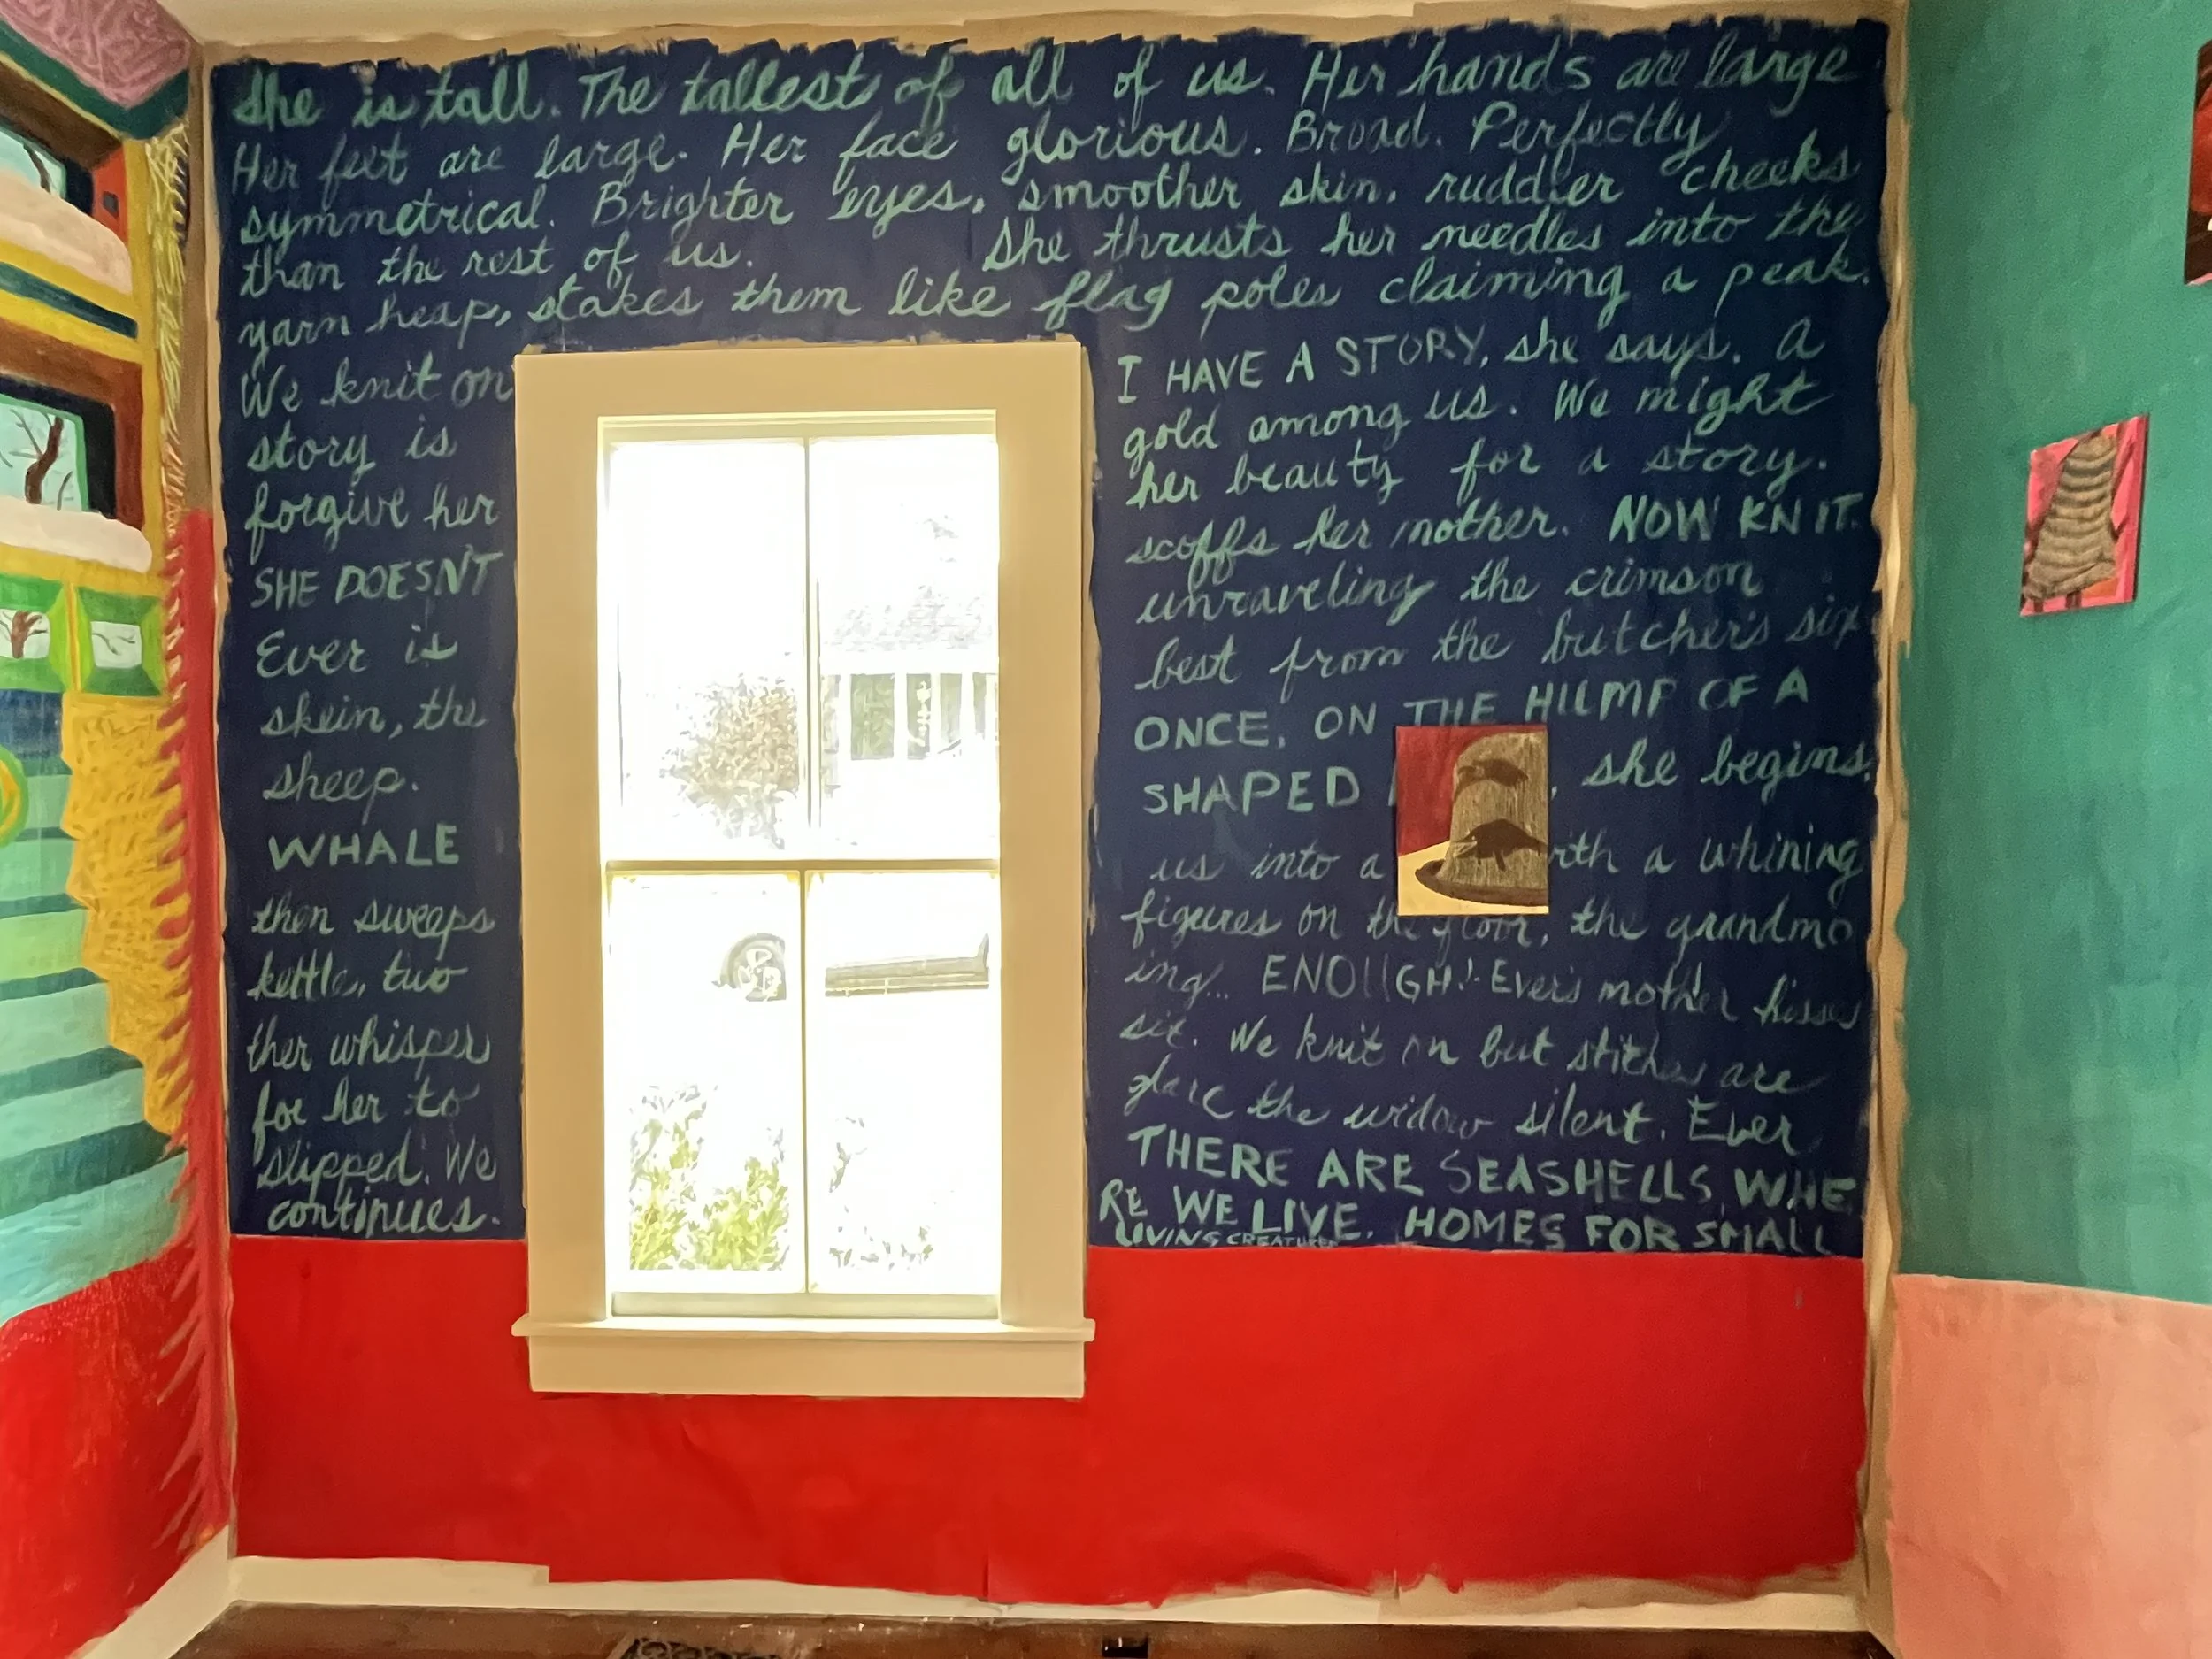 She is tall. The tallest of all of us. Her hands are large.
Her feet are large. Her face glorious. Broad. Perfectly
symmetrical. Brighter eyes, smoother skin, ruddier cheeks
than the rest of us. She thrusts her needles into the
yarn heap, stakes them like flag poles claiming a peak.
We knit on I HAVE A STORY, she says. A
story is gold among us. We might
forgive her her beauty for a story.
SHE DOESN'T scoffs her mother. NOW KNIT.
Ever is unraveling the crimson
skein, the best from the butcher's six
sheep. ONCE, ON THE HUMP OF A
WHALE SHAPED , she begins,
then sweeps us into a a whining
kettle, two figures on the floor, the grandmo
ther whisper ing... ENOUGH! Ever's mother hisses
for her to six. We knit on but stitches are
slipped. We glare the widow silent. Ever
continues. THERE ARE SEASHELLS WHE
RE WE LIVE. HOMES FOR SMALL
LIVING CREATURES